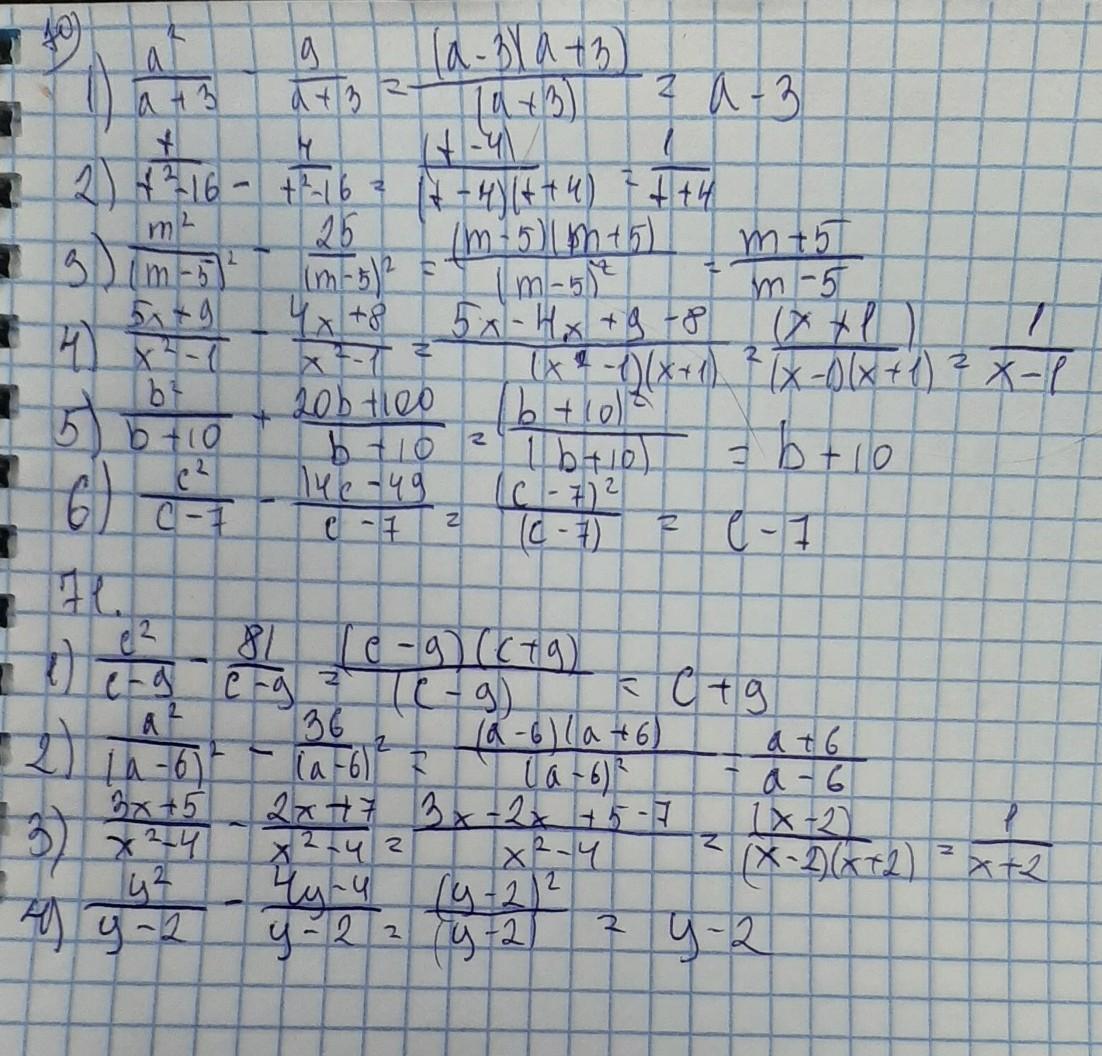 70)
1) a²/(a+3) - 9/(a+3) = (a-3)(a+3)/(a+3) = a-3
2) t/(t²-16) - 4/(t²-16) = (t-4)/((t-4)(t+4)) = 1/(t+4)
3) m²/(m-5)² - 25/(m-5)² = (m-5)(m+5)/(m-5)² = (m+5)/(m-5)
4) (5x+9)/(x²-1) - (4x+8)/(x²-1) = (5x-4x+9-8)/((x-1)(x+1)) = (x+1)/((x-1)(x+1)) = 1/(x-1)
5) b²/(b+10) + (20b+100)/(b+10) = (b+10)²/(b+10) = b+10
6) c²/(c-7) - (14c-49)/(c-7) = (c-7)²/(c-7) = c-7
71.
1) c²/(c-9) - 81/(c-9) = (c-9)(c+9)/(c-9) = c+9
2) a²/(a-6)² - 36/(a-6)² = (a-6)(a+6)/(a-6)² = (a+6)/(a-6)
3) (3x+5)/(x²-4) - (2x+7)/(x²-4) = (3x-2x+5-7)/(x²-4) = (x-2)/((x-2)(x+2)) = 1/(x+2)
4) y²/(y-2) - (4y-4)/(y-2) = (y-2)²/(y-2) = y-2